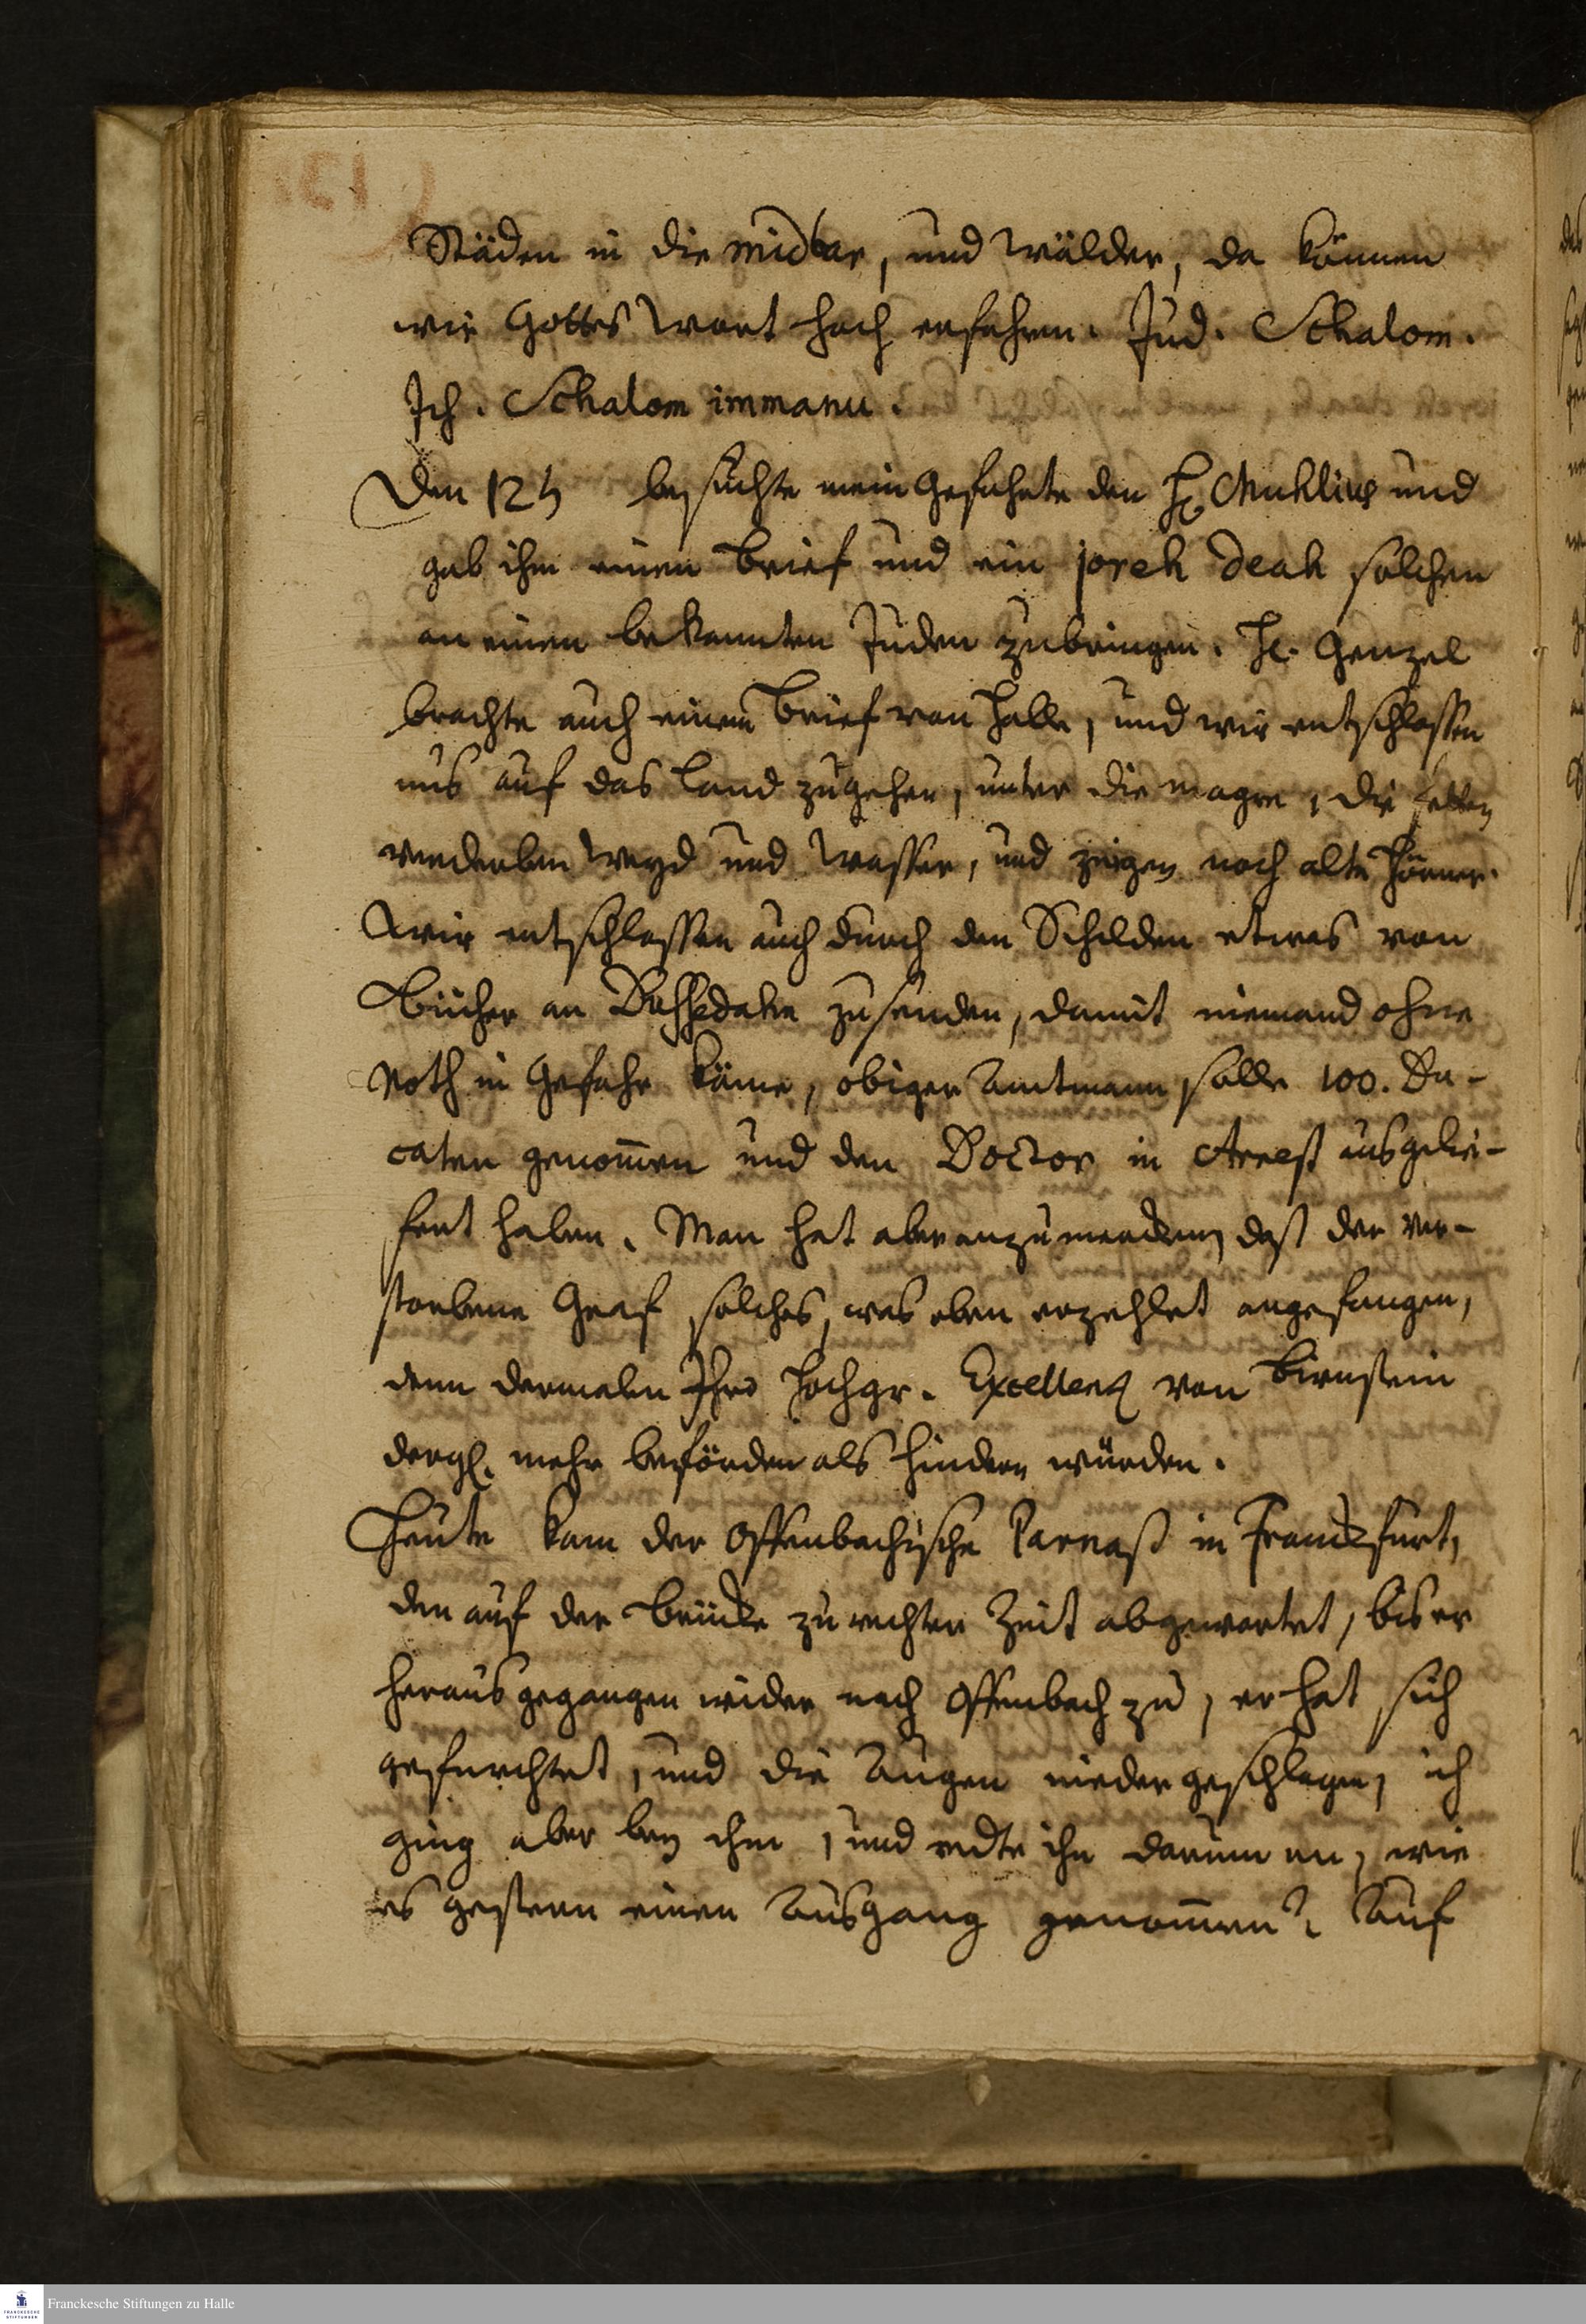 Städen in die midbar, und Wälder, da können
wir Gottes Wort hoch erfahren. Jud. Schalom.
Ich. Schalom immanu.
Den 12 ♄ besuchte mein Gefahrte den H. Muhlius und
gab ihm einen Brief und ein joreh deah solchen
an einen bekannten Juden zubringen. H. Genzel
brachte auch einen Brief von Halle, und wir entschlossen
uns auf das Land zugehen, unter die magre, die fetten
verderben Weyd und Wasser, und zeigen noch alte Hörner.
Wir entschlossen auch durch den Schilden etwas von
Bücher an zusenden, damit niemand ohne
Noth in Gefahr käme, obiger Amtmann solle 100. Du-
caten genom̄en und den Doctor in Arrest ausgelie-
fert haben. Man hat aber anzumercken daß der ver-
storbene Graf solches, was oben erzehlet angefangen,
denn dermalen Ihro Hochgr. Excellenz von Birnstein
dergl. mehr beförden als hindern würden.
Heute kam der Offenbachische Parnaß in Franckfurt,
den auf der Brücke zu rechter Zeit abgewartet, bis er
heraus gegangen wider nach Offenbach zu, er hat sich
gefurchtet, und die Augen niedergeschlagen, ich
ging aber bey ihm, und redte ihn darum an, wie
es gestern einen Ausgang genom̄en? Auf
Franckesche Stiftungen zu Halle